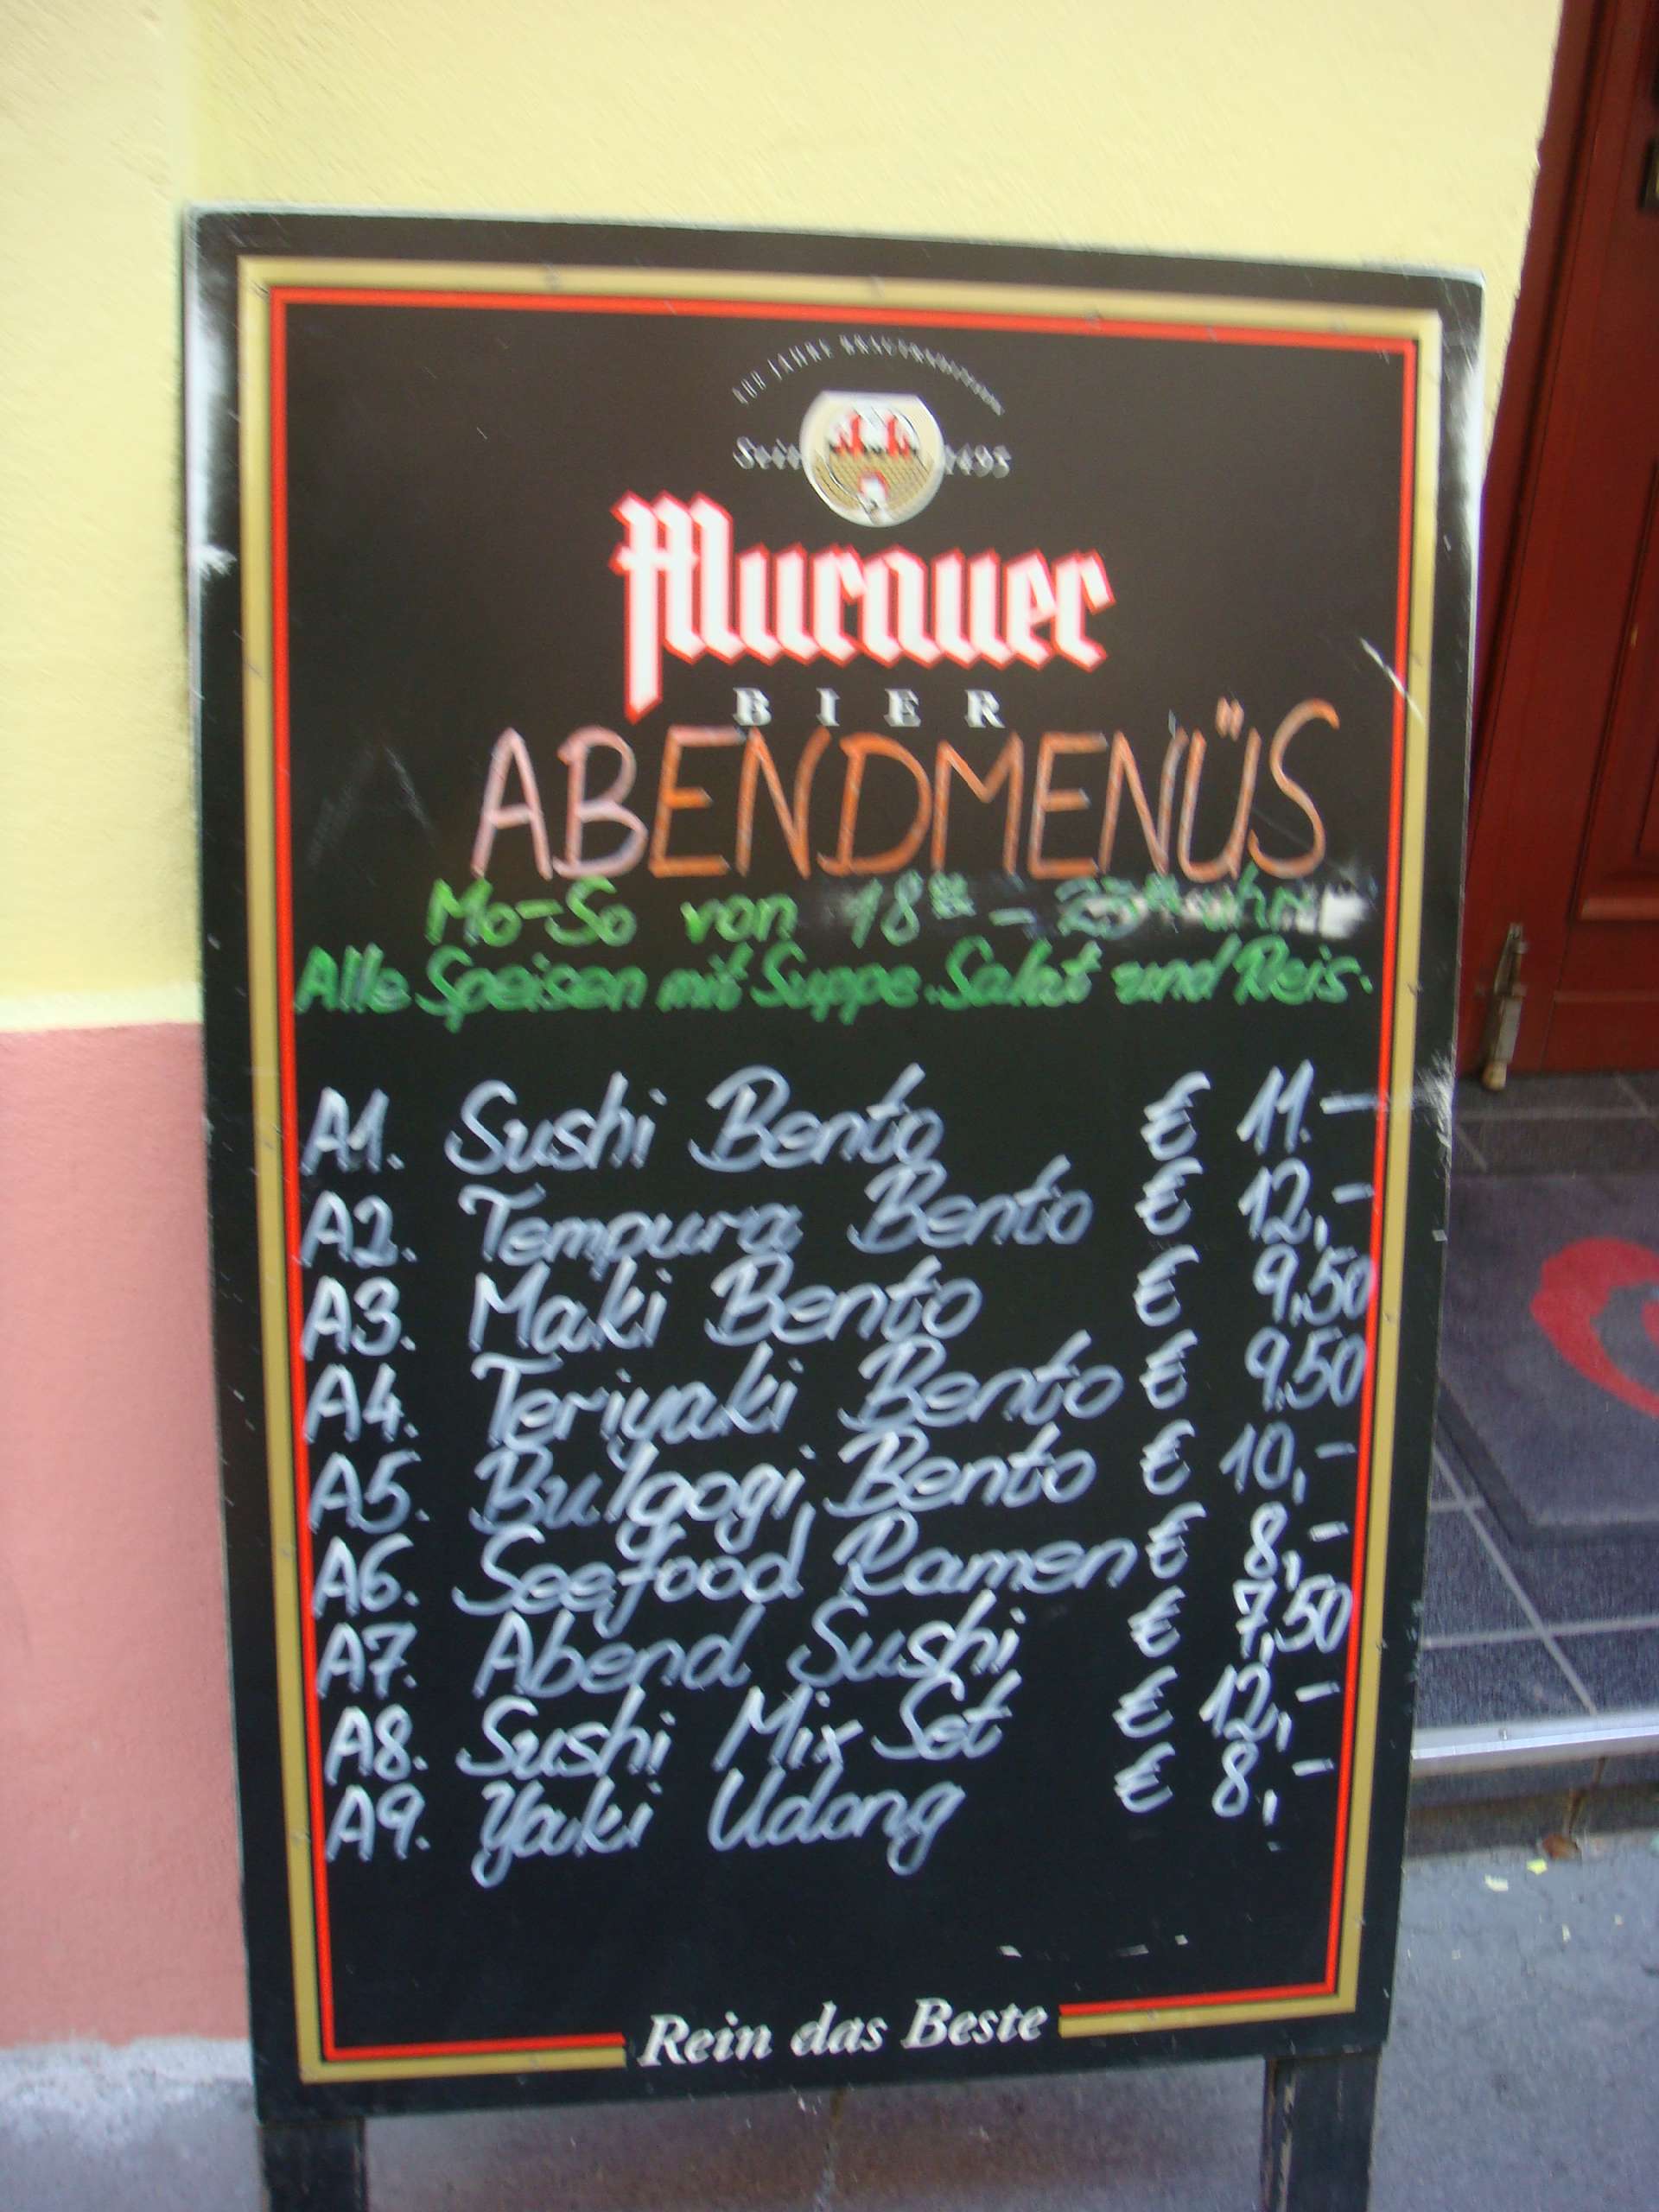 500 JAHRE BRAUTRADITION
Seit 1495
Murauer
BIER
ABENDMENÜS
Mo-So von 18⁰⁰ - 23⁰⁰ uhr
Alle Speisen mit Suppe. Salat und Reis.
A1. Sushi Bento € 11.-
A2. Tempura Bento € 12,-
A3. Maki Bento € 9,50
A4. Teriyaki Bento € 9.50
A5. Bulgogi Bento € 10,-
A6. Seefood Ramen € 8,-
A7. Abend Sushi € 7,50
A8. Sushi Mix Set € 12,-
A9. Yaki Udong € 8,-
Rein das Beste